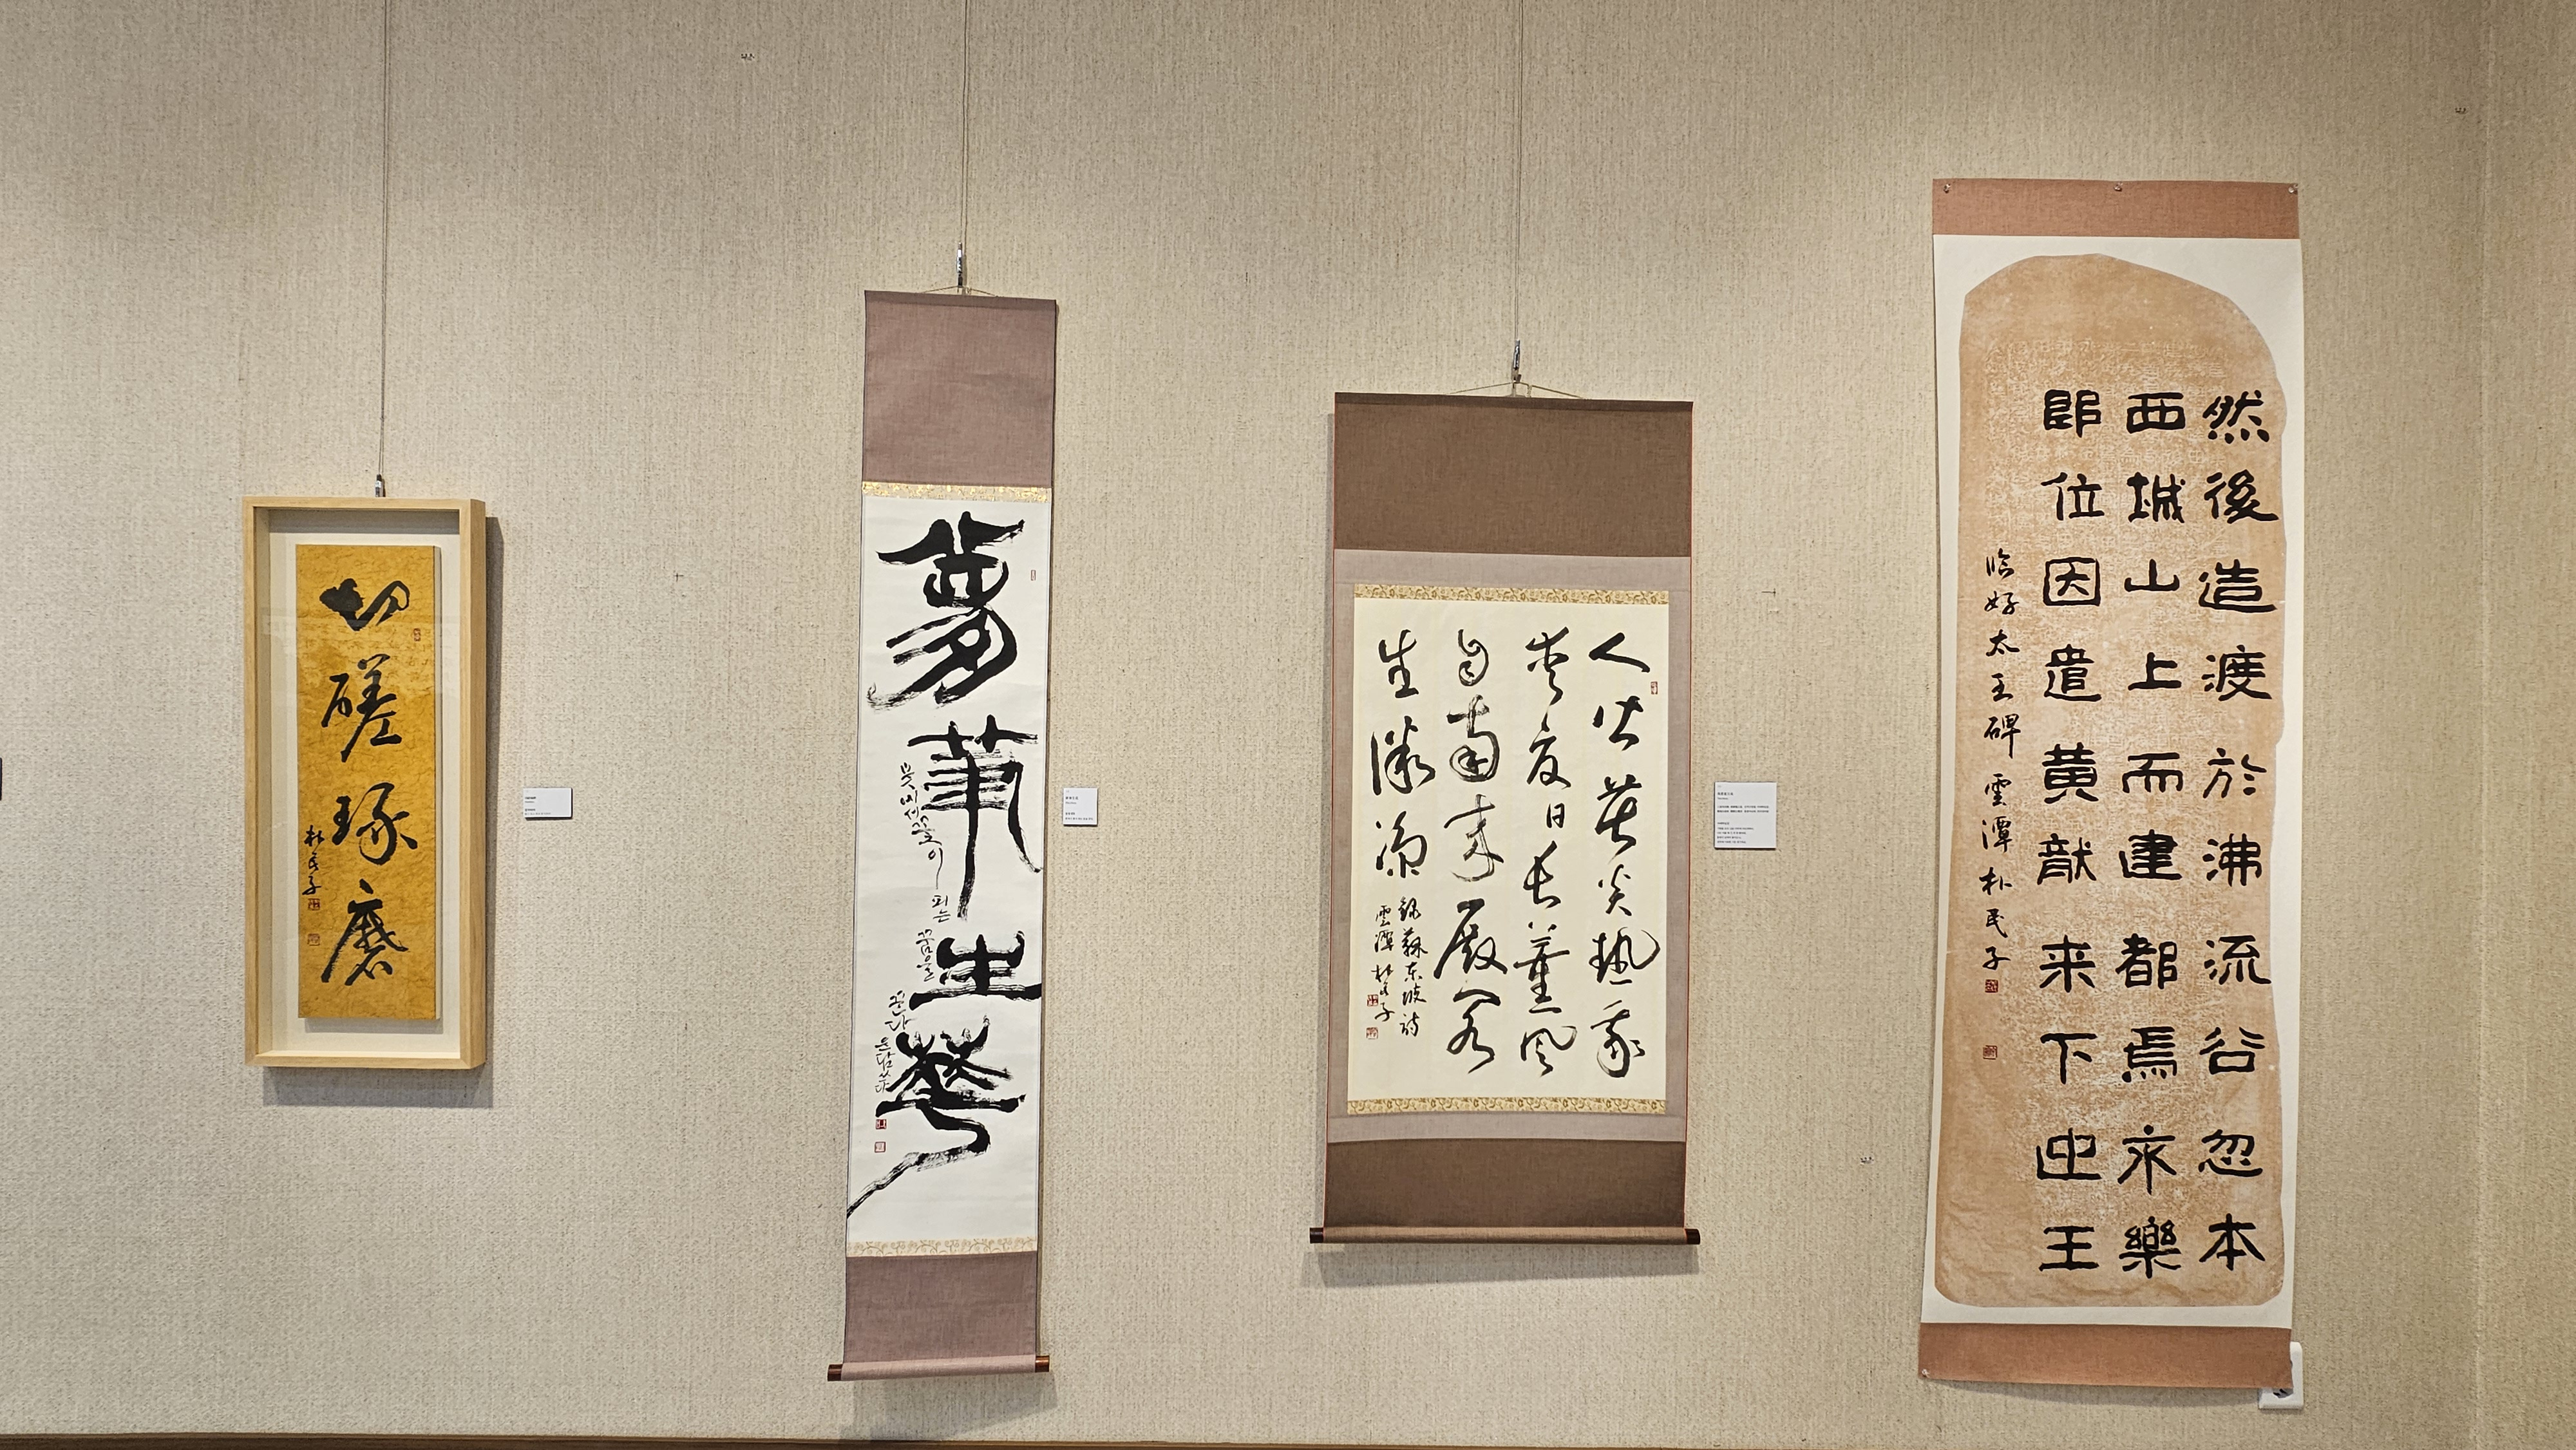 切磋琢磨
朴民子
夢筆生華
꽃이 피는 꿈을 꾼다
人皆苦炎熱我
愛夏日長薰風
自南來殿閣
生微涼
錄蘇東坡詩
雲潭 朴民子
然後造渡於沸流谷忽本
西城山上而建都焉永樂
即位因遣黃龍来下迎王
臨好太王碑 雲潭 朴民子